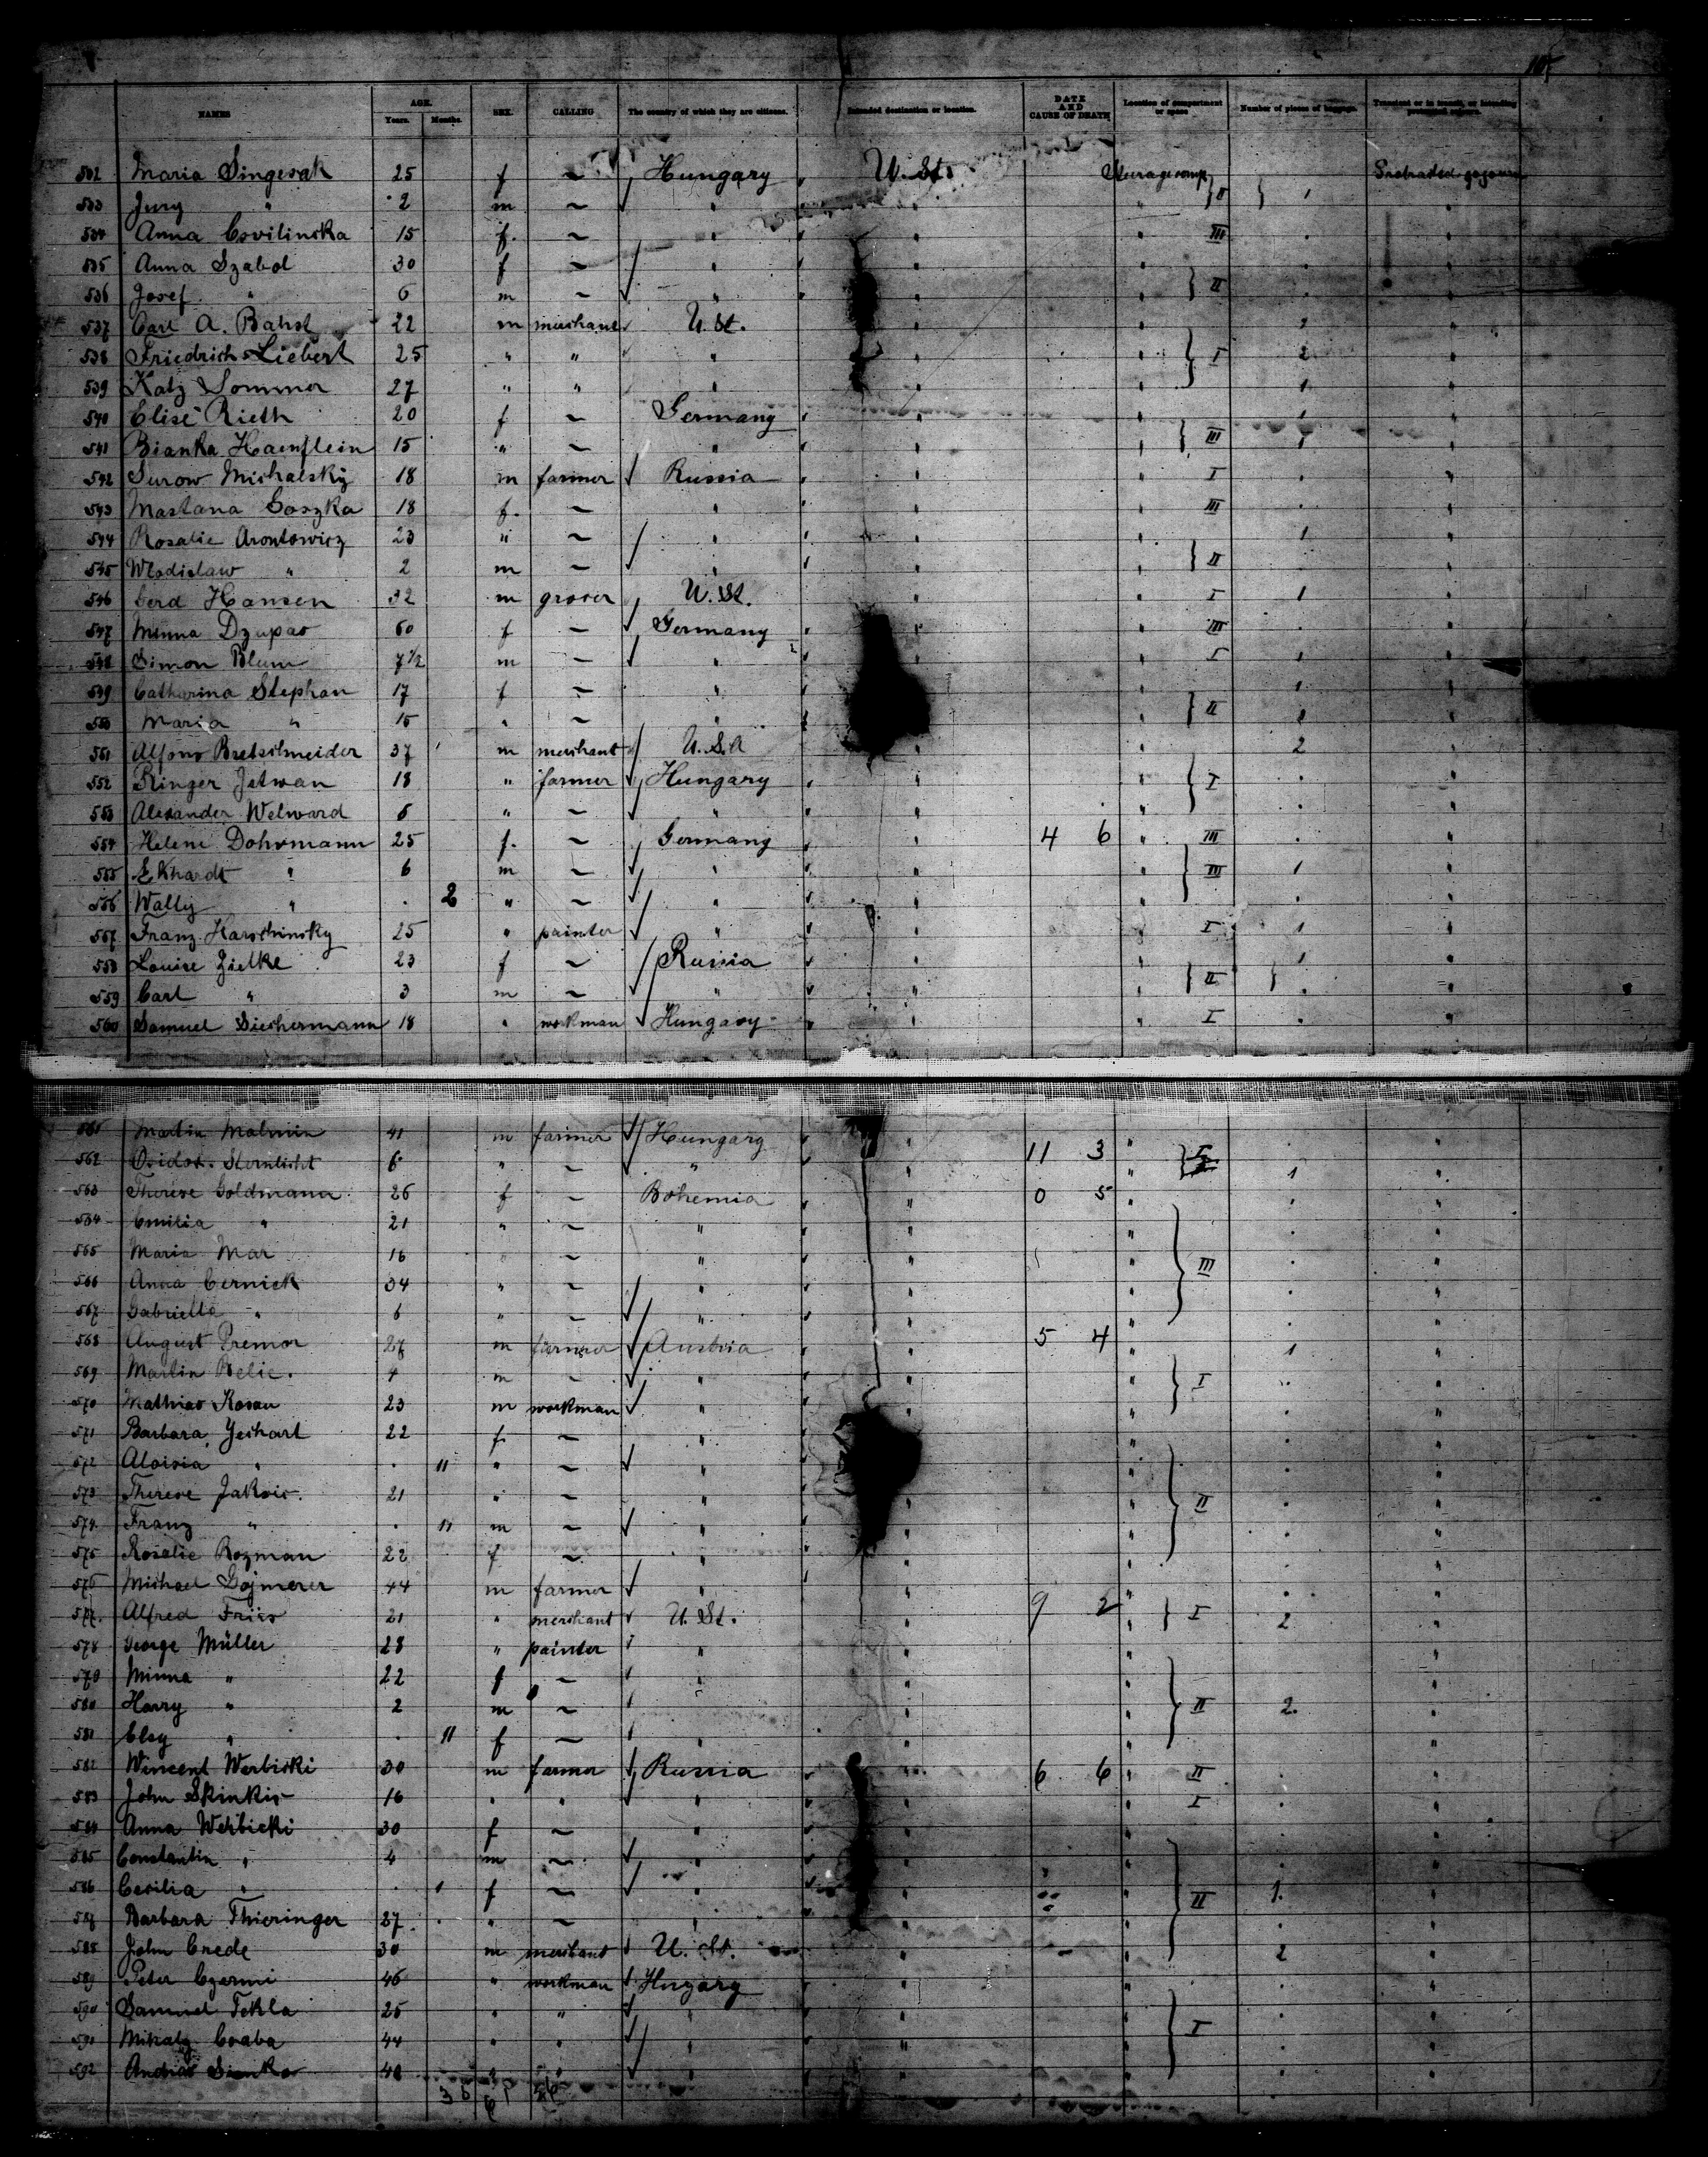 NAMES AGE. Years. Months. SEX. CALLING The country of which they are citizens. Intended destination or location. DATE AND CAUSE OF DEATH Location of compartment or space Number of pieces of baggage. Transient or in transit, or intending protracted sojourn.
532 Maria Singerak 25 f ~ Hungary " U. St. 1
533 Jury " 2 m ~ " " " II " "
534 Anna Csvilinska 15 f. ~ " " " III " "
535 Anna Szabol 30 f ~ " " " " "
536 Josef " 6 m ~ " " " II " "
537 Carl A. Bahst 22 m merchant U. St. " " 1 "
538 Friedrich Liebert 25 " " " " I 2 "
539 Katz Sommer 27 " " " " " 1 "
540 Elise Rieth 20 f ~ Germany " " 1 "
541 Bianka Haenflein 15 " ~ " " " III 1 "
542 Surow Michalsky 18 m farmer Russia " " I " "
543 Mastana Goszka 18 f. ~ " " " III " "
544 Rosalie Arontowicz 23 " ~ " " " 1 "
545 Wladislaw " 2 m ~ " " " II "
546 Gerd Hansen 32 m grocer U. St. " " I 1 "
547 Minna Dzupas 60 f ~ Germany " " III " "
548 Simon Blum 7 1/2 m ~ " " " I 1 "
549 Catharina Stephan 17 f ~ " " " 1 "
550 Maria " 15 " ~ " " " II "
551 Alfons Bretschneider 37 m merchant U. S. A " " 2 "
552 Ringer Jstwan 18 " farmer Hungary " " I " "
553 Alexander Welward 5 " ~ " " " " "
554 Helene Dohrmann 25 f. ~ Germany " 4 6 " III " "
555 Ekhardt " 6 m ~ " " " III 1 "
556 Wally " . 2 " ~ " " " "
557 Franz Harschinsky 25 " painter " " " I 1 "
558 Louise Zielke 23 f ~ Russia " " 1 "
559 Carl " 3 m ~ " " " II " "
560 Samuel Siechermann 18 " workman Hungary " " I " "
561 Martin Malmin 41 m farmer Hungary " 11 3 " I " "
562 Osidor Sternlicht 6 " ~ " " " 1 "
563 Therese Goldmann 26 f ~ Bohemia " 0 5 " " "
564 Emilia " 21 " ~ " " " " "
565 Maria Mar 16 " ~ " " " III " "
566 Anna Cernick 34 " ~ " " " " "
567 Gabriella " 6 " ~ " " " " "
568 August Premor 27 m farmer Austria " 5 4 " 1 "
569 Martin Belic. 4 m ~ " " " I " "
570 Mathias Rosan 23 m workman " " " " "
571 Barbara Yeshart 22 f. ~ " " " " "
572 Aloisia " . 11 " ~ " " " " "
573 Therese Jaksic. 21 " ~ " " " II " "
574. Franz " . 11 m ~ " " " " "
575 Rosalie Rozman 22 f ~ " " " " "
576 Michael Gajmerer 44 m farmer " " 9 2 " " "
577. Alfred Friis 21 " merchant U. St. " " I 2 "
578 George Müller 28 " painter " " " "
579 Minna " 22 f ~ " " " "
580 Harry " 2 m ~ " " " II 2. "
581 Elsy " . 11 f ~ " " " "
582 Wincent Werbicki 30 m farmer Russia " 6 6 " II " "
583 John Skinkis 16 " " " " " I " "
584 Anna Werbicki 30 f ~ " " " "
585 Constantin " 4 m ~ " " " " "
586 Cecilia " . 1 f ~ " " " II 1. "
587 Barbara Thieringer 27. " ~ " " " " "
588 John Crede 30 m merchant U. St. " " 2 "
589 Peter Czarmi 46 " workman Hngary " " " "
590 Samuel Tekla 25 " " " " " " "
591 Mihaly Csaba 44 " " " " " I " "
592 Andras Simko 48 " " " " " " "